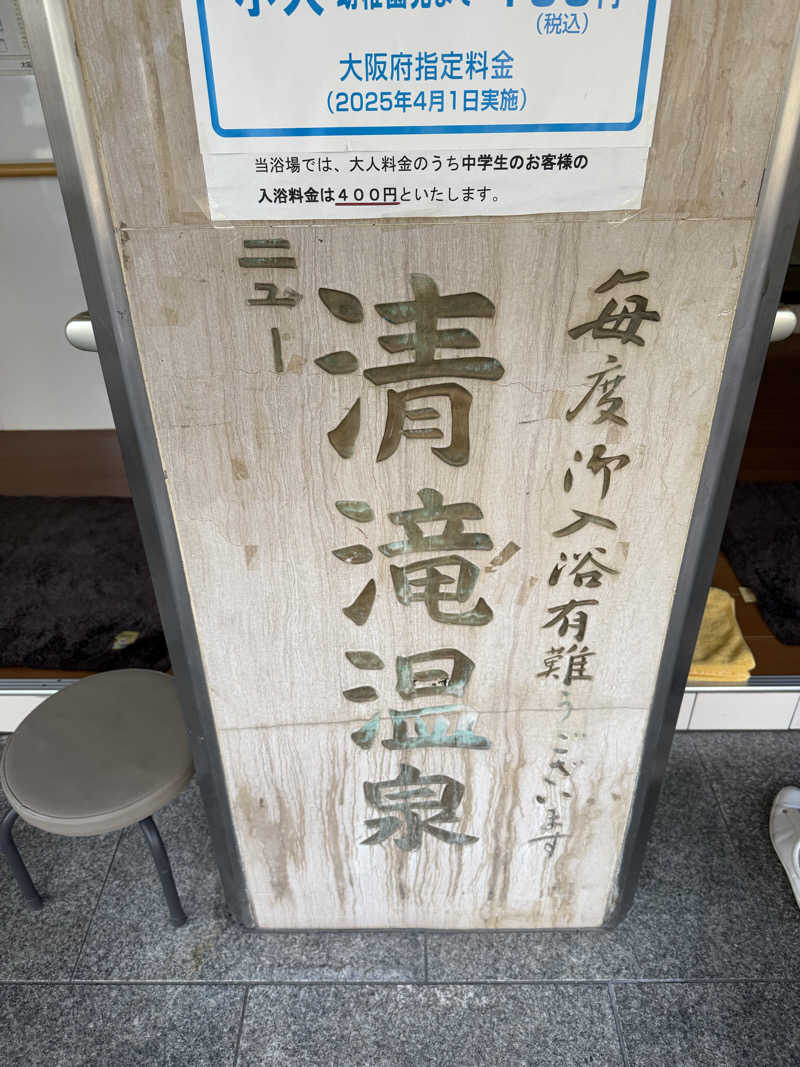 (税込)
大阪府指定料金
(2025年4月1日実施)
当浴場では、大人料金のうち中学生のお客様の
入浴料金は400円といたします。
毎度御入浴有難うございます
ニュー
清滝温泉